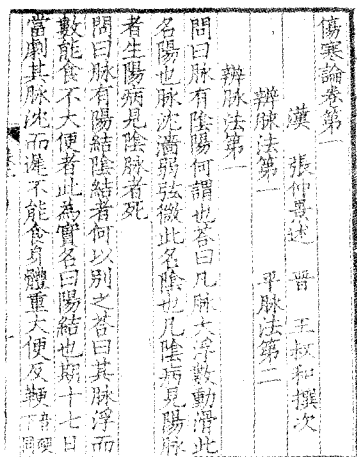 傷寒論卷第一
漢　張仲景述　晉　王叔和撰次
辨脉法第一　平脉法第二
辨脉法第一
問曰脉有陰陽何謂也荅曰凡脉大浮數動滑此
名陽也脉沈濇弱弦微此名陰也凡陰病見陽脉
者生陽病見陰脉者死
問曰脉有陽結陰結者何以別之荅曰其脉浮而
數能食不大便者此為實名曰陽結也期十七日
當劇其脉沈而遲不能食身體重大便反鞕音硬下同